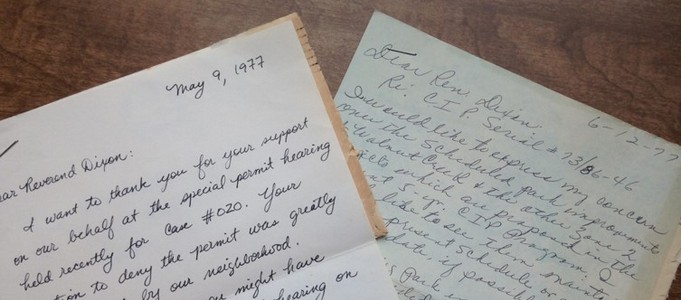 May 9, 1977
ear Reverend Dixon:
I want to thank you for your support
on our behalf at the special permit hearing
held recently for Case #020. Your
tion to deny the permit was greatly
by our neighborhood.
you might have
hearing on
Dear Rev. Dixon, 6-12-77
Re: C.I.P. Serial # 73/86-46
I would like to express my concern
over the scheduled park improvements
Walnut Creek & the other Zone 2
which are proposed in the
5-yr. C.I.P. Program. I
like to see them maintain
present schedule or
date, if possible
Park